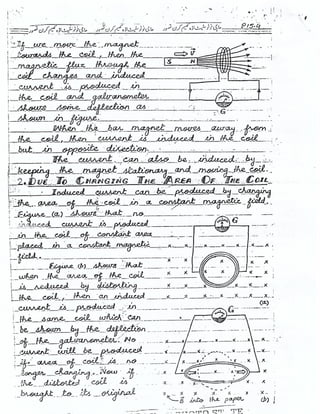 P15-4
If we move the magnet
towards the coil, then the
magnetic flux through the
coil changes and induced
current is produced in
the coil and galvanometer
shows some deflection as
shown in figure.
S N
G
When the bar magnet moves away from
the coil, then current is induced in the coil
but in opposite direction.
The current can also be induced by
keeping the magnet stationary and moving the coil.
2. DUE TO CHANGING THE AREA OF THE COIL
Induced current can be produced by changing
the area of the coil in a constant magnetic field.
Figure (a) shows that no
induced current is produced
in the coil of constant area
placed in a constant magnetic
field.
G
Figure (b) shows that
when the area of the coil
is reduced by distorting
the coil, then an induced
current is produced in
the same coil which can
be shown by the deflection
of the galvanometer. No
current will be produced
if area of coil is no
longer changing. Now if
the distorted coil is
brought to its original
(a)
G
B into the paper
(b)